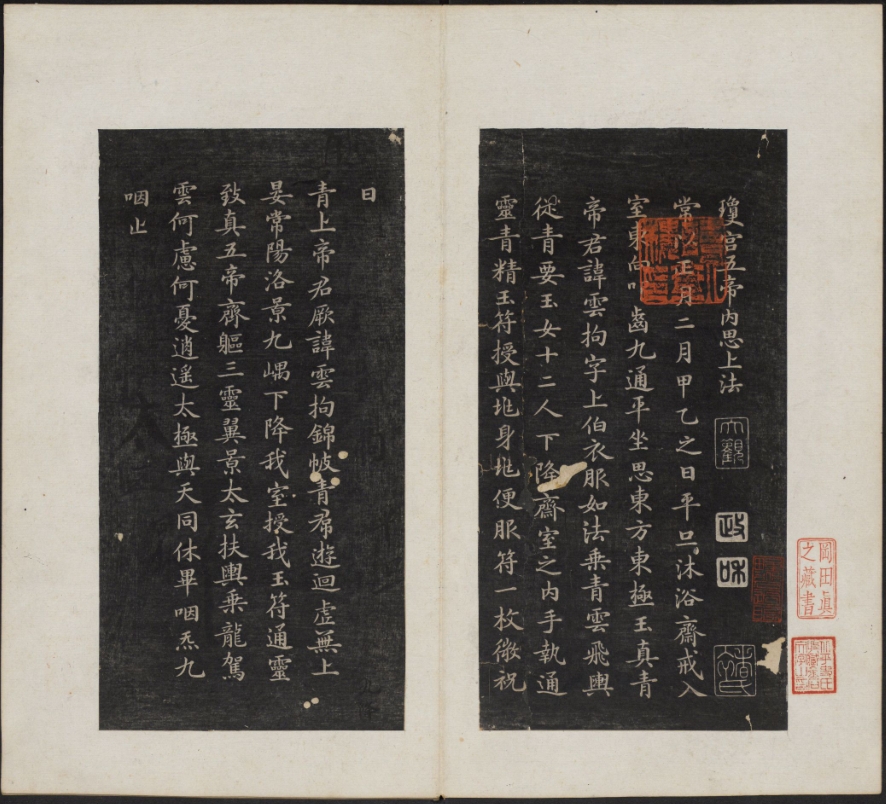 瓊宫五帝内思上法
大觀
政和
常以正月二月甲乙之日平旦沐浴齋戒入
室東向叩齒九通平坐思東方東極玉真青
帝君諱雲拘字上伯衣服如法乘青雲飛輿
從青要玉女十二人下降齋室之内手執通
靈青精玉符授與兆身兆便服符一枚微祝
曰
青上帝君厥諱雲拘錦帔青帬遊迴虛無上
晏常陽洛景九嵎下降我室授我玉符通靈
致真五帝齊軀三靈翼景太玄扶輿乘龍駕
雲何慮何憂逍遥太極與天同休畢咽炁九
咽止
岡田眞
之藏書